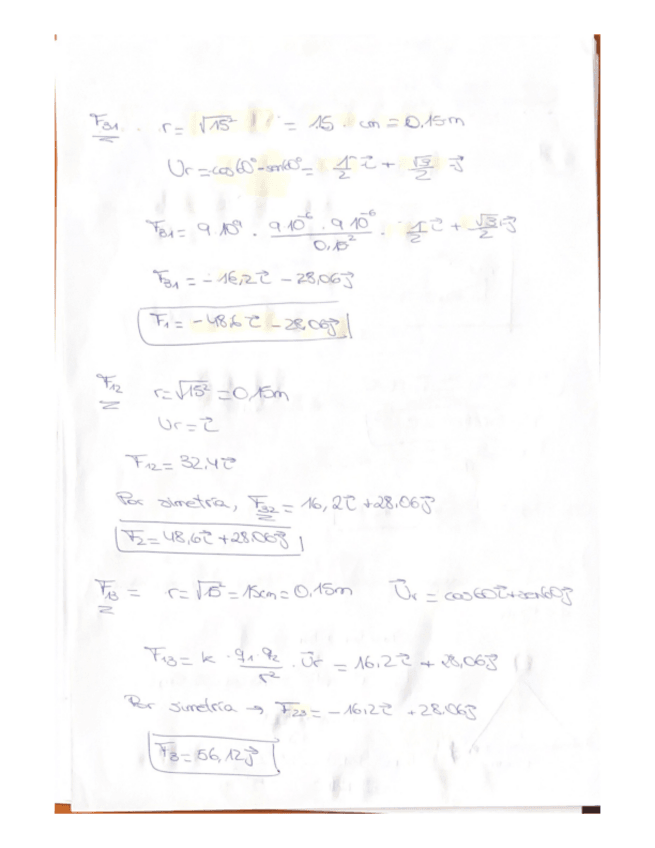 F₃₁ r = √15² = 15 cm = 0,15m
Ur = cos60° - sen60° = 1/2 i⃗ + √3/2 j⃗
F₃₁ = 9·10⁹ · (9·10⁻⁶ · 9·10⁻⁶)/0,15² · 1/2 i⃗ + √3/2 j⃗
F₃₁ = -16,2 i⃗ - 28,06 j⃗
F₁ = -48,6 i⃗ - 28,06 j⃗
F₁₂ r = √15² = 0,15m
Ur = i⃗
F₁₂ = 32,4 i⃗
Por simetría, F₃₂ = 16,2 i⃗ + 28,06 j⃗
F₂ = 48,6 i⃗ + 28,06 j⃗
F₁₃ = r = √15² = 15cm = 0,15m U⃗r = cos60 i⃗ + sen60 j⃗
F₁₃ = k · (q₁·q₂)/r² · U⃗r = 16,2 i⃗ + 28,06 j⃗
Por simetría → F₂₃ = -16,2 i⃗ + 28,06 j⃗
F₃ = 56,12 j⃗